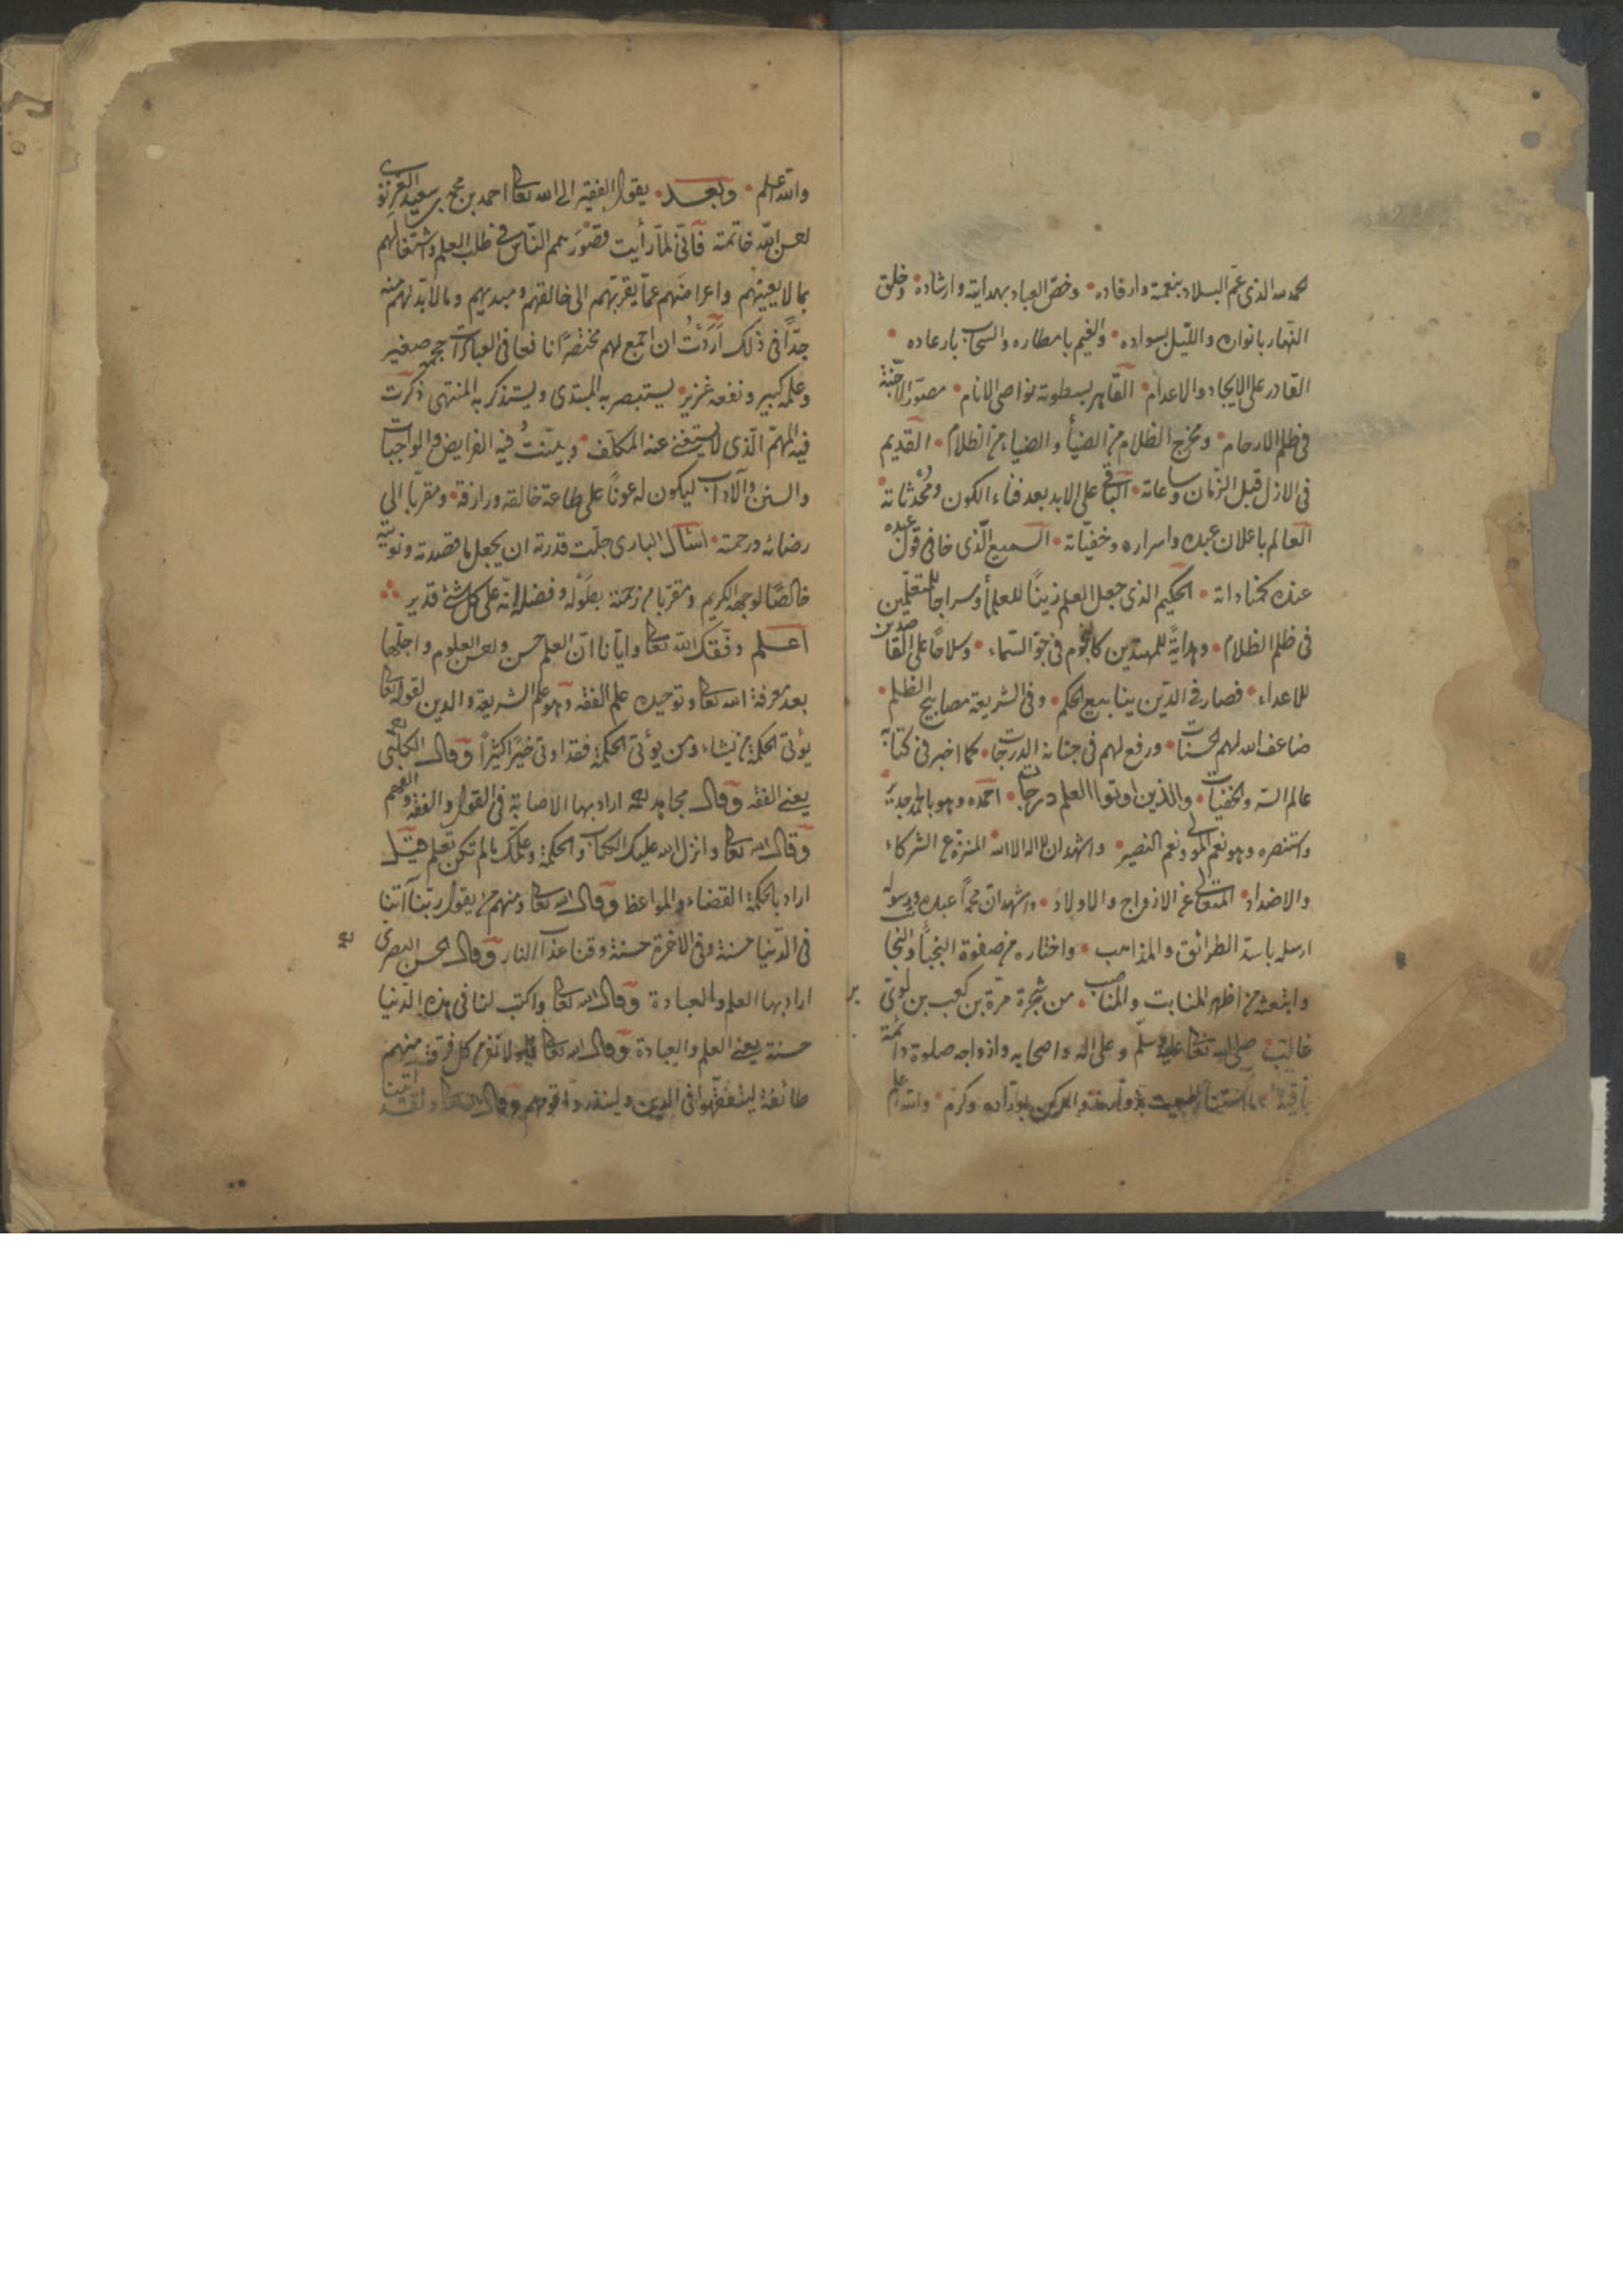 الحمد لله الذى عمّ البلاد بنعمته وارفاده وخصّ العباد بهدايته وارشاده وخلق
النّهار بانواره واللّيل بسواده والغيم بامطاره والسّحاب بارعاده
القادر على الايجاد والاعدام القاهر بسطوته نواصى الانام مصوّر الاجنّة
فى ظلم الارحام ومخرج الظلام من الضياء والضياء من الظلام القديم
فى الازل قبل الزمان وساعاته الباقى على الابد بعد فناء الكون ومُحْدثاته
العالم باعلان عبده واسراره وخفيّاته السميع الّذى خافى قول عبده
عنده كمناداته الحكيم الذى جعل العلم زينًا للعلماء وسراجا للمتعلّمين
فى ظلم الظلام وهدايةً للمهتدين كالنجوم فى جوّ السّماء وسلاحًا على القاصدين
للاعداء فصار فى الدّين ينابيع الحكم وفى الشريعة مصابيح الظلم
ضاعف الله لهم الحسنات ورفع لهم فى جنانه الدرجات كما اخبر فى كتابه
عالم السّر والخفيات والذين اوتوا العلم درجات احمده وهو بالحمد جدير
واستنصره وهو نعم المولى ونعم النصير واشهد ان لا اله الا الله المنزّه عن الشركاء
والاضداد المتعالى عن الازواج والاولاد واشهد انّ محمداً عبده ورسوله
ارسله باسدّ الطرائق والمذاهب واختاره من صفوة النجباء والنجا
وابتعثه من اظهر المنابت والمناصب من شجرة مرّة بن كعب بن لوىّ بن
غالب صلى الله تعالى عليه وسلّم وعلى اله واصحابه وازواجه صلوة دائمة
باقية وكرّم والله اعلم
والله اعلم وبعد يقول الفقير الى الله تعالى احمد بن محمد بن سعيد الغزنوى
احسن الله خاتمته فانّى لمّا رأيت قصور همم النّاس فى طلب العلم واشتغالهم
بما لا يعينهم واعراضهم عمّا يقربهم الى خالقهم ومبديهم وما لا بدّ لهم منه
جدّاً فى ذلك اَرَدْتُ ان اجمع لهم مختصرًا نافعا فى العبادات حجمه صغير
وعلمه كبير ونفعه غزير يستبصر به المبتدى ويستذكر به المنتهى ذكرت
فيه المهمّ الّذى لا يستغنى عنه المكلّف وبيّنتُ فيه الفرايض والواجبات
والسنن والآداب ليكون له عونًا على طاعة خالقه ورازقه ومقربًا الى
رضائه ورحمته اسئال البارى جلّت قدرته ان يجعل ما قصدته ونويته
خالصًا لوجهه الكريم ومقربا من رحمته بطَوْله وفضله انّه على كل شئ قدير
اعلم وفّقك الله تعالى وايّانا انّ العلم حسن واحسن العلوم واجلّها
بعد معرفة الله تعالى وتوحيده علم الفقه وهو علم الشريعة والدين لقوله تعالى
يؤتى الحكمة من يشاء ومن يؤتى الحكمة فقد اوتى خيرًا كثيرًا وقال الكلبىّ
يعنى الفقه وقال مجاهد اراد بها الاصابة فى القول والفقه والفهم
وقال الله تعالى وانزل الله عليك الكتاب والحكمة وعلّمك ما لم تكن تعلم قيل
اراد بالحكمة القضاء والمواعظ وقال الله تعالى ومنهم من يقول ربّنا آتنا
فى الدّنيا حسنة وفى الاخرة حسنة وقنا عذاب النار وقال الحسن البصرى
اراد بها العلم والعبادة وقال الله تعالى واكتب لنا فى هذه الدّنيا
حسنة يعنى العلم والعبادة وقال الله تعالى فلولا نفر من كل فرقة منهم
طائفة ليتفقّهوا فى الدين ولينذروا قومهم وقال الله تعالى ولقد آتينا